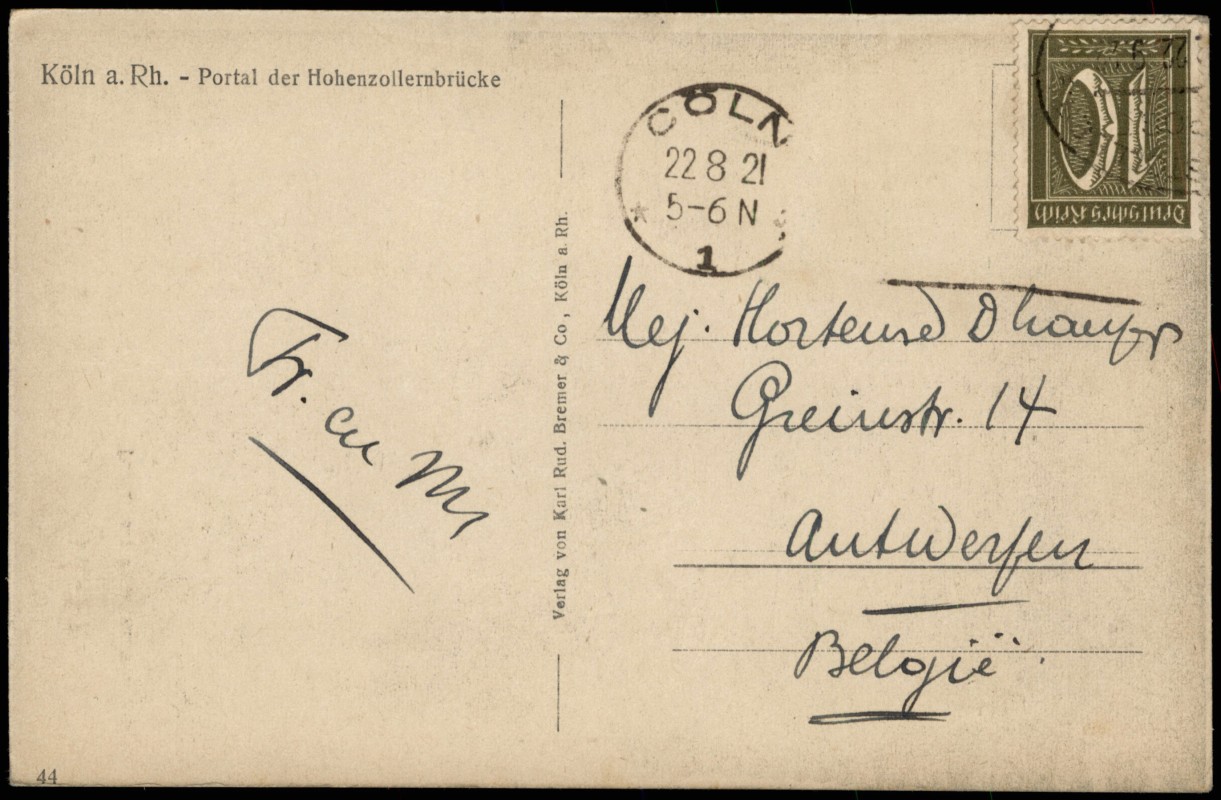 Köln a. Rh. - Portal der Hohenzollernbrücke
CÖLN
22 8 21
5-6 N
* 1
10
Deutsches Reich
Verlag von Karl Rud. Bremer & Co., Köln a. Rh.
Mej. Hortense
14
Antwerpen
België
44